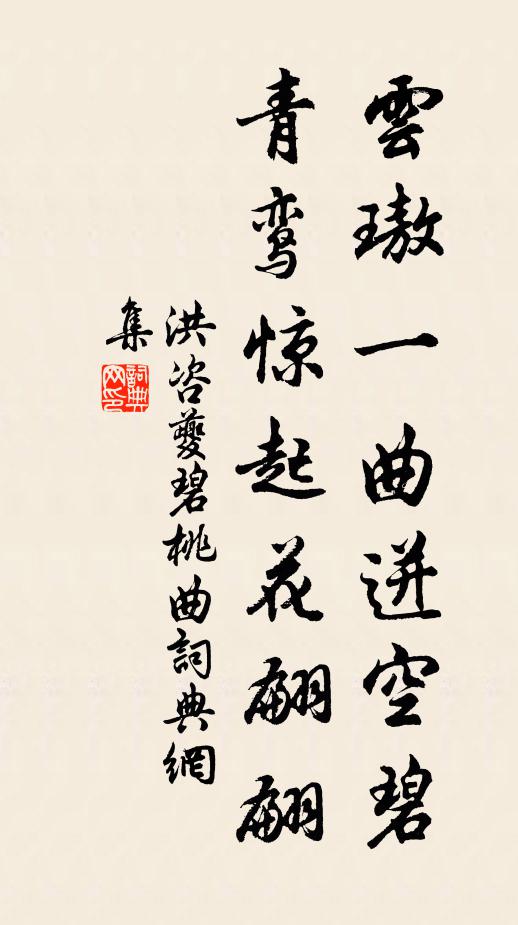 雲璈一曲迸空碧
青鸾惊起花翩翩
洪咨夔碧桃曲詞典網
集
詞典网印